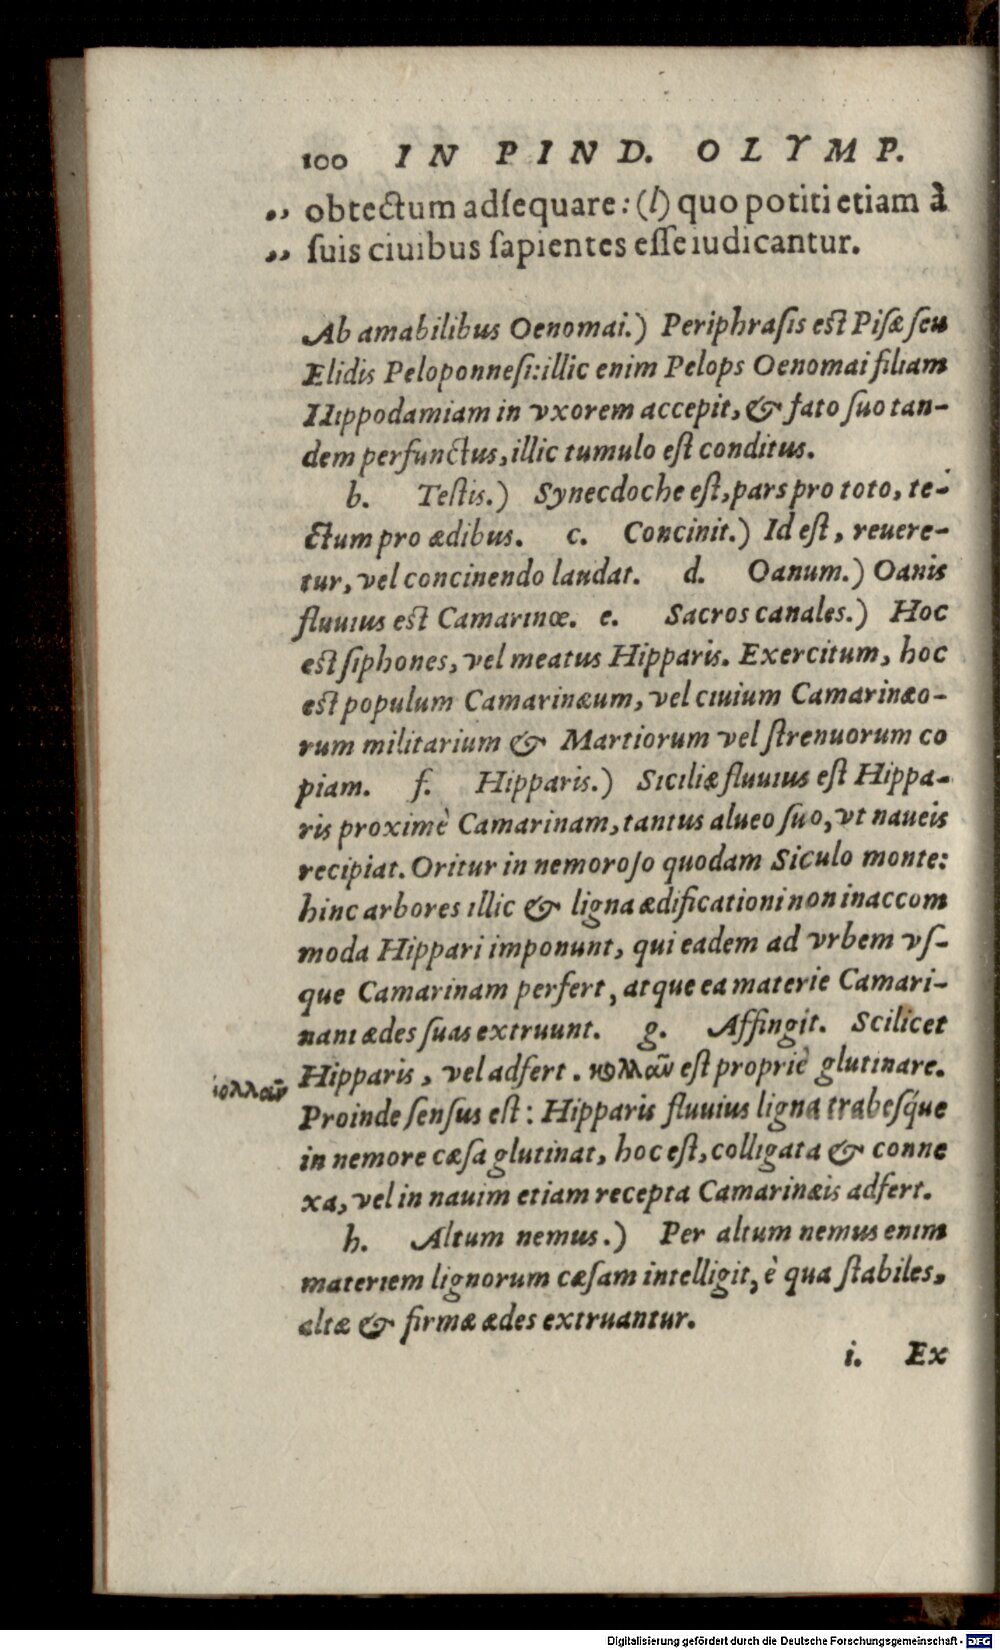 100 IN PIND. OLYMP.
„ obtectum adſequare: (l) quo potiti etiam à
„ ſuis ciuibus ſapientes eſſe iudicantur.
Ab amabilibus Oenomai.) Periphraſis eſt Piſæ ſeu
Elidis Peloponneſi: illic enim Pelops Oenomai filiam
Hippodamiam in vxorem accepit, & fato ſuo tan-
dem perfunctus, illic tumulo eſt conditus.
b. Teſtis.) Synecdoche eſt, pars pro toto, te-
ctum pro ædibus. c. Concinit.) Id eſt, reuere-
tur, vel concinendo laudat. d. Oanum.) Oanis
fluuius eſt Camarinœ. e. Sacros canales.) Hoc
eſt ſiphones, vel meatus Hipparis. Exercitum, hoc
eſt populum Camarinæum, vel ciuium Camarinæo-
rum militarium & Martiorum vel ſtrenuorum co
piam. f. Hipparis.) Siciliæ fluuius eſt Hippa-
ris proximè Camarinam, tantus alueo ſuo, vt naueis
recipiat. Oritur in nemoroſo quodam Siculo monte:
hinc arbores illic & ligna ædificationi non inaccom
moda Hippari imponunt, qui eadem ad vrbem vſ-
que Camarinam perfert, atque ea materie Camari-
nani ædes ſuas extruunt. g. Affingit. Scilicet
Hipparis, vel adfert. κολλᾶν eſt propriè glutinare.
κολλᾶν
Proinde ſenſus eſt: Hipparis fluuius ligna trabeſq́ue
in nemore cæſa glutinat, hoc eſt, colligata & conne
xa, vel in nauim etiam recepta Camarinæis adfert.
h. Altum nemus.) Per altum nemus enim
materiem lignorum cæſam intelligit, è qua ſtabiles,
altæ & firmæ ædes extruantur.
i. Ex
Digitalisierung gefördert durch die Deutsche Forschungsgemeinschaft - DFG